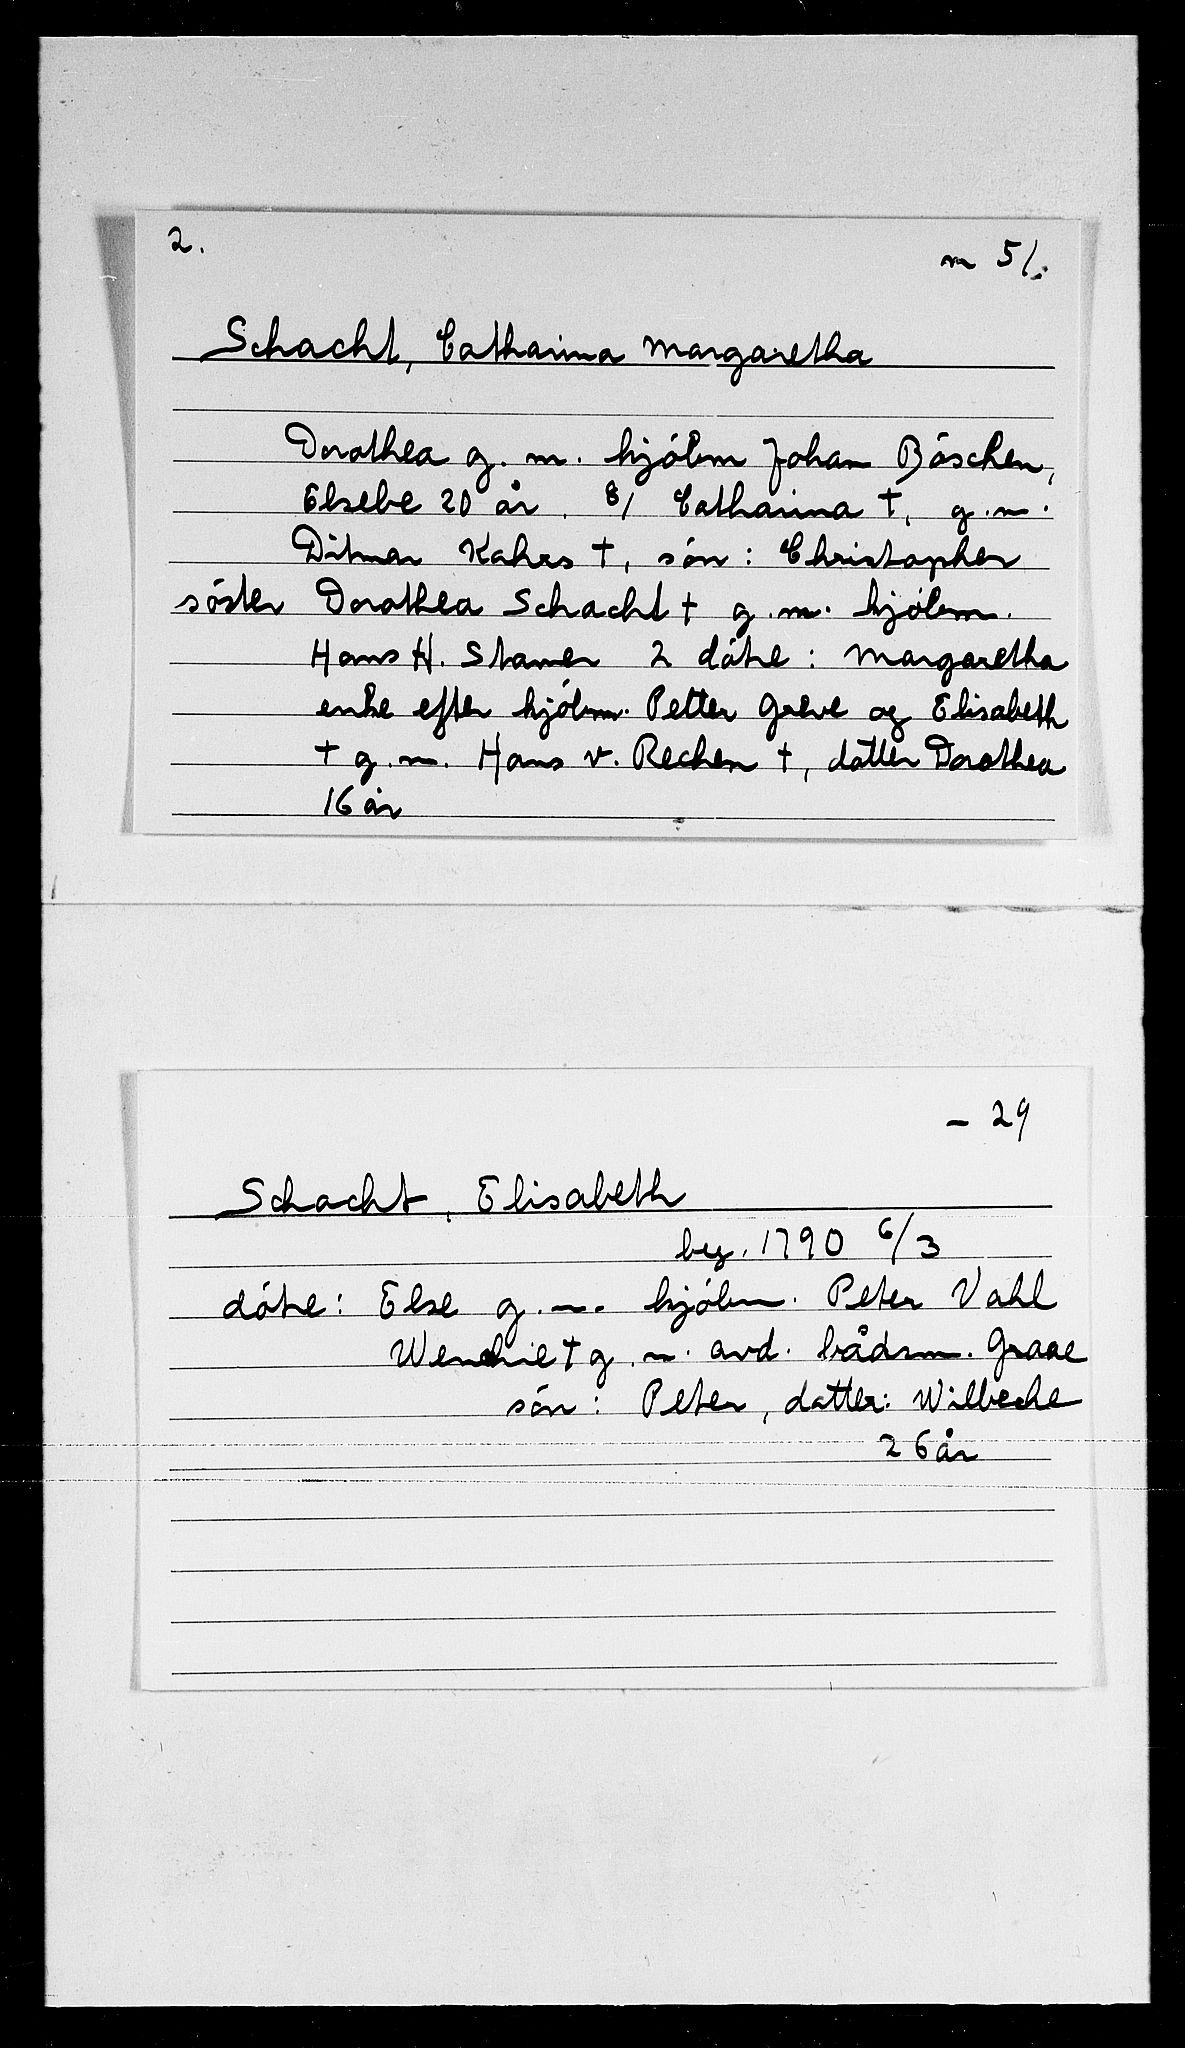 2.
m 51.
Schacht, Catharina Margaretha
Dorothea g. m. kjöbm Johan Böschen,
Elsebe 20 år. 8/ Catharina †, g. m.
Ditmar Kahrs †, sön: Christopher
söster Dorothea Schacht † g. m. kjöbm.
Hans H. Stamer 2 dötre: Margaretha
enke efter kjöbm. Petter Greve og Elisabeth
† g. m. Hans v. Rechen †, datter Dorothea
16 år
- 29
Schacht, Elisabeth
beg. 1790 6/3
dötre: Else g. m. kjöbm. Peter Vahl
Wenche † g. m. avd. bådsm. Graae
sön: Peter, datter: Wilbeche
26 år